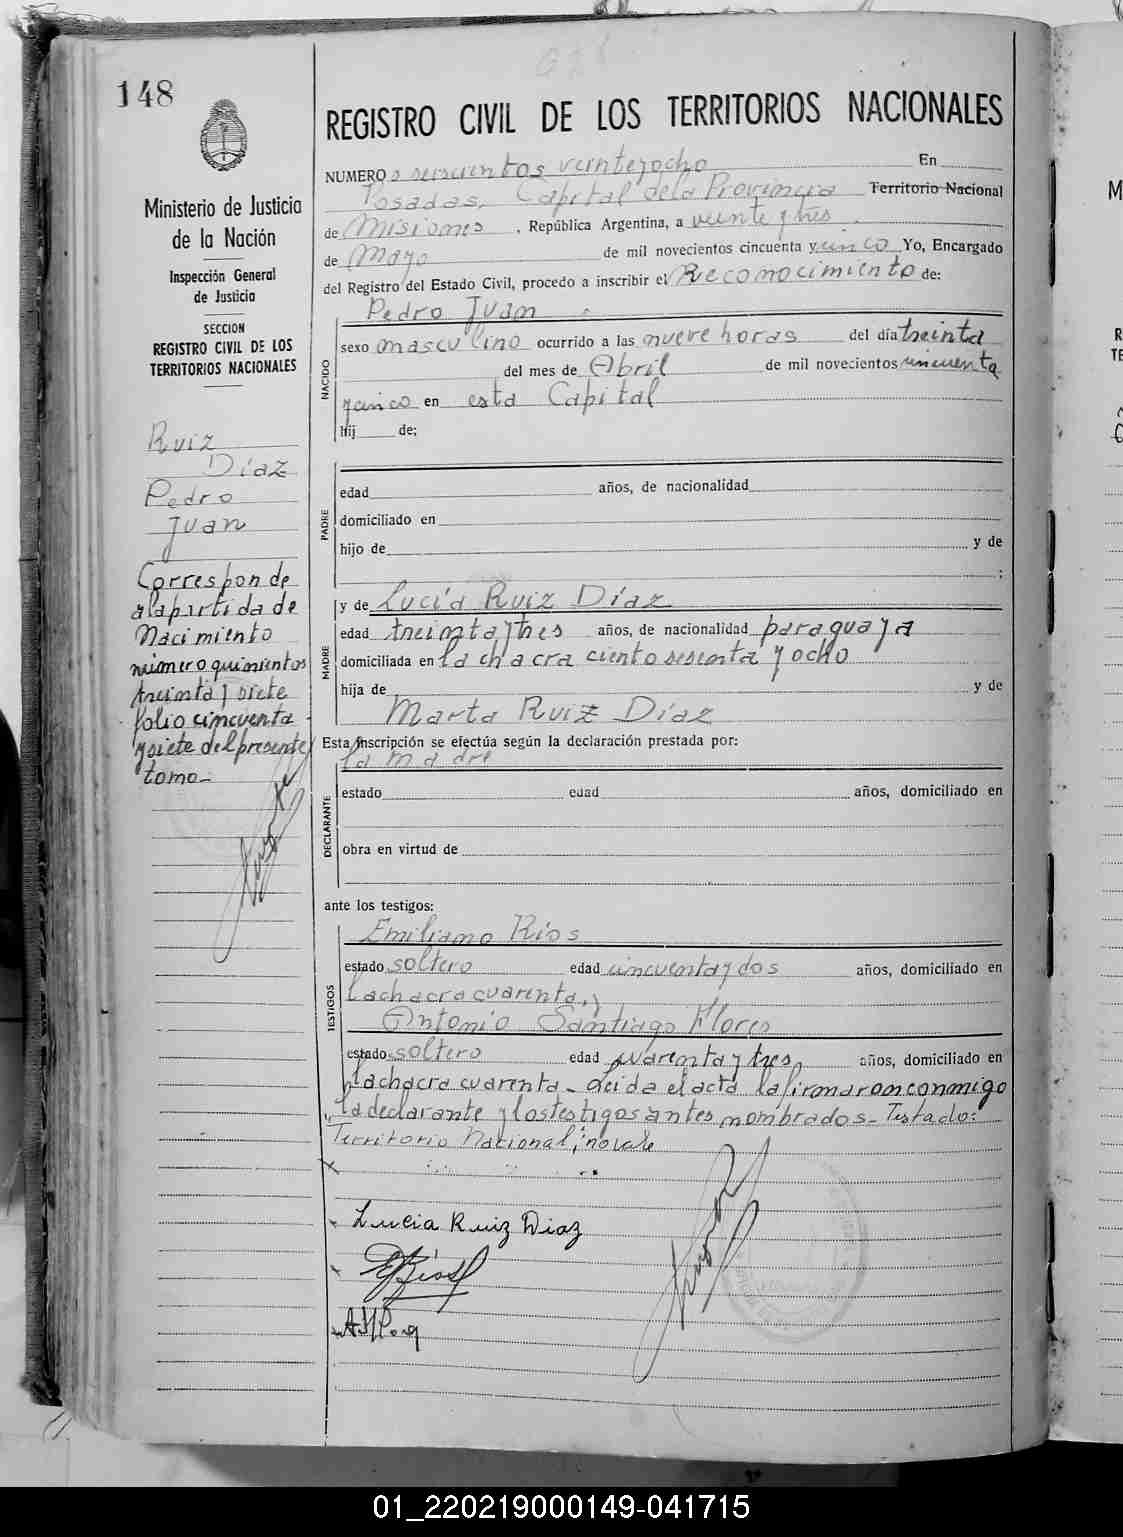 148
Ministerio de Justicia
de la Nación
Inspección General
de Justicia
SECCION
REGISTRO CIVIL DE LOS
TERRITORIOS NACIONALES
Ruiz
Díaz
Pedro
Juan
Correspon de
a la partida de
Nacimiento
número quinientos
treinta y siete
folio cincuenta
y siete del presente
tomo-
REGISTRO CIVIL DE LOS TERRITORIOS NACIONALES
NUMERO seiscientos veinteyocho En
Posadas, Capital de la Provincia Territorio Nacional
de Misiones , República Argentina, a veinte y tres
de Mayo de mil novecientos cincuenta y cinco Yo, Encargado
del Registro del Estado Civil, procedo a inscribir el Reconocimiento de:
Pedro Juan
NACIDO
sexo masculino ocurrido a las nueve horas del día treinta
del mes de Abril de mil novecientos cincuenta
y cinco en esta Capital
Hij de:
PADRE
edad años, de nacionalidad
domiciliado en
hijo de y de
;
MADRE
y de Lucía Ruiz Díaz
edad treinta y tres años, de nacionalidad paraguaya
domiciliada en la chacra ciento sesenta y ocho
hija de y de
Marta Ruiz Díaz
Esta inscripción se efectúa según la declaración prestada por:
la madre
DECLARANTE
estado edad años, domiciliado en
obra en virtud de
ante los testigos:
TESTIGOS
Emiliano Ríos
estado soltero edad cincuenta y dos años, domiciliado en
la chacra cuarenta, y
Antonio Santiago Flores
estado soltero edad cuarenta y tres años, domiciliado en
la chacra cuarenta- Leida el acta la firmaron conmigo
la declarante y los testigos antes nombrados- Testado:
Territorio Nacional; no vale
Lucia Ruiz Diaz
01_220219000149-041715